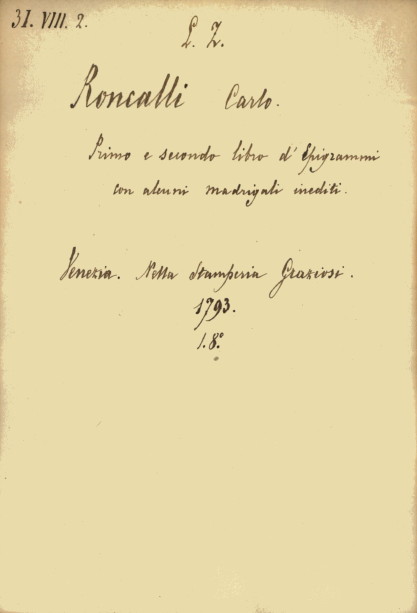 31. VIII. 2.
L. Z.
Roncalli Carlo.
Primo e secondo libro d' Epigrammi
con alcuni madrigali inediti.
Venezia. Nella Stamperia Graziosi.
1793.
1. 8.°